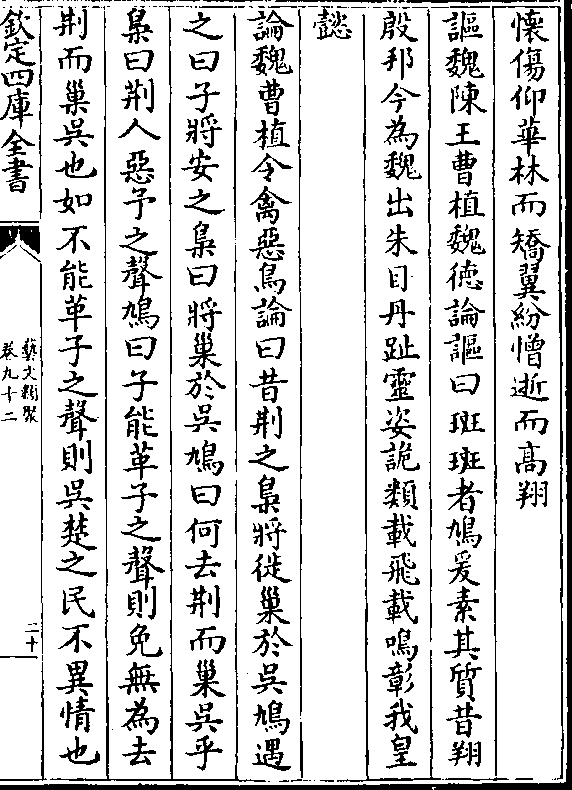 懐傷仰華林而矯翼紛憎逝而髙翔
謳魏陳王曹植魏徳論謳曰班班者鳩爰素其質昔翔
殷邦今為魏出朱目丹趾靈姿詭類載飛載鳴彰我皇
懿
論魏曹植令禽惡鳥論曰昔荆之梟將徙巢於吳鳩遇
之曰子將安之梟曰將巢於吳鳩曰何去荆而巢吳乎
梟曰荆人惡予之聲鳩曰子能革子之聲則免無為去
荆而巢吳也如不能革子之聲則吳楚之民不異情也
欽定四庫全書
藝文類聚
卷九十二
二十